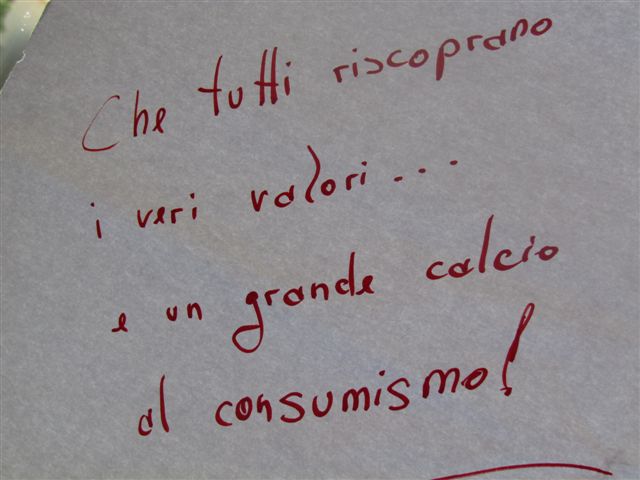 Che tutti riscoprano
i veri valori...
e un grande calcio
al consumismo!